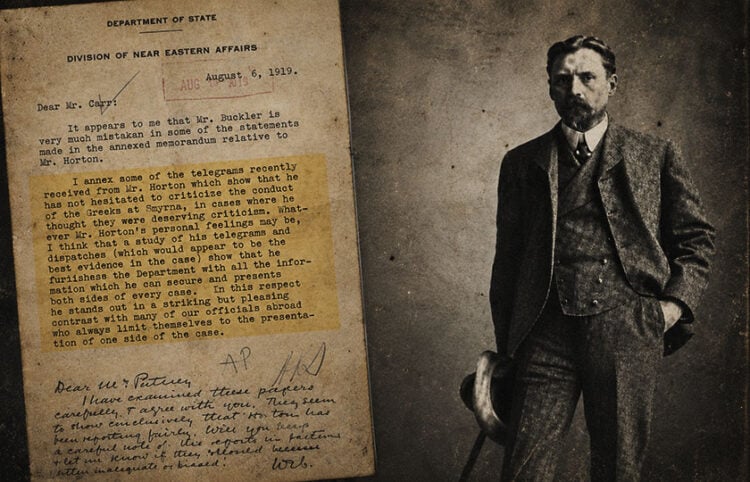 DEPARTMENT OF STATE
DIVISION OF NEAR EASTERN AFFAIRS
August 6, 1919.
AUG 1919
Dear Mr. Carr:
It appears to me that Mr. Buckler is
very much mistakan in some of the statements
made in the annexed memorandum relative to
Mr. Horton.
I annex some of the telegrams recently
received from Mr. Horton which show that he
has not hesitated to criticize the conduct
of the Greeks at Smyrna, in cases where he
thought they were deserving criticism. What-
ever Mr. Horton's personal feelings may be,
I think that a study of his telegrams and
dispatches (which would appear to be the
best evidence in the case) show that he
furiishess the Department with all the infor-
mation which he can secure and presents
both sides of every case. In this respect
he stands out in a striking but pleasing
contrast with many of our officials abroad
who always limit themselves to the presenta-
tion of one side of the case.
AP
Dear Mr Putney
I have examined these papers
carefully & agree with you. They seem
to show conclusively that Horton has
been reporting fairly. Will you keep
a careful note of his reports in
& let me know if they
inadequate or biased?